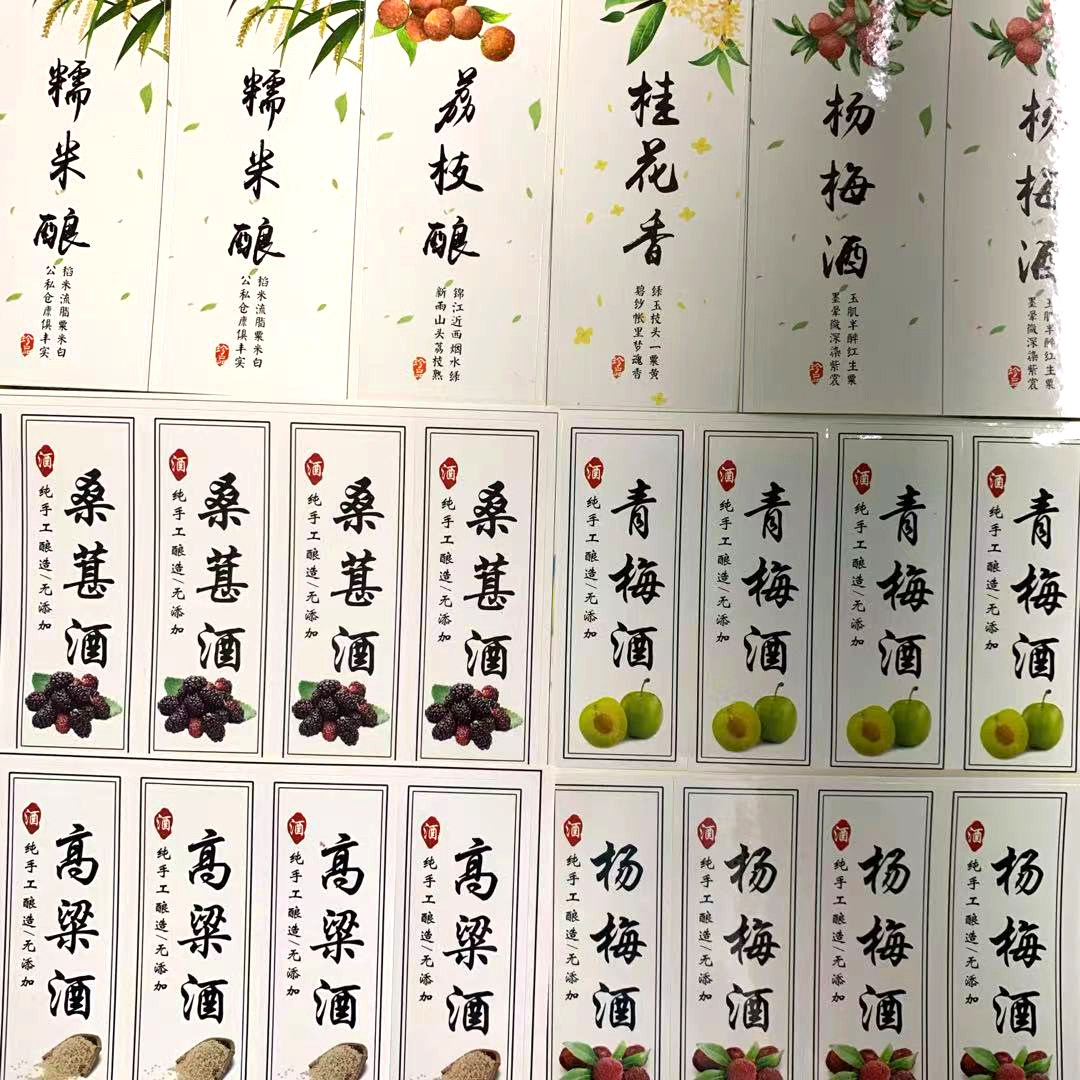 糯米酿
稻米流脂粟米白
公私仓廪俱丰实
珍品
糯米酿
稻米流脂粟米白
公私仓廪俱丰实
珍品
荔枝酿
锦江近西烟水绿
新雨山头荔枝熟
珍品
桂花香
绿玉枝头一粟黄
碧纱帐里梦魂香
珍品
杨梅酒
玉肌半醉红生粟
墨晕微深染紫裳
珍品
杨梅酒
玉肌半醉红生粟
墨晕微深染紫裳
珍品
酒
桑葚酒
纯手工酿造/无添加
酒
桑葚酒
纯手工酿造/无添加
酒
桑葚酒
纯手工酿造/无添加
酒
桑葚酒
纯手工酿造/无添加
酒
青梅酒
纯手工酿造/无添加
酒
青梅酒
纯手工酿造/无添加
酒
青梅酒
纯手工酿造/无添加
酒
青梅酒
纯手工酿造/无添加
酒
高粱酒
纯手工酿造/无添加
酒
高粱酒
纯手工酿造/无添加
酒
高粱酒
纯手工酿造/无添加
酒
高粱酒
纯手工酿造/无添加
酒
杨梅酒
纯手工酿造/无添加
酒
杨梅酒
纯手工酿造/无添加
酒
杨梅酒
纯手工酿造/无添加
酒
杨梅酒
纯手工酿造/无添加